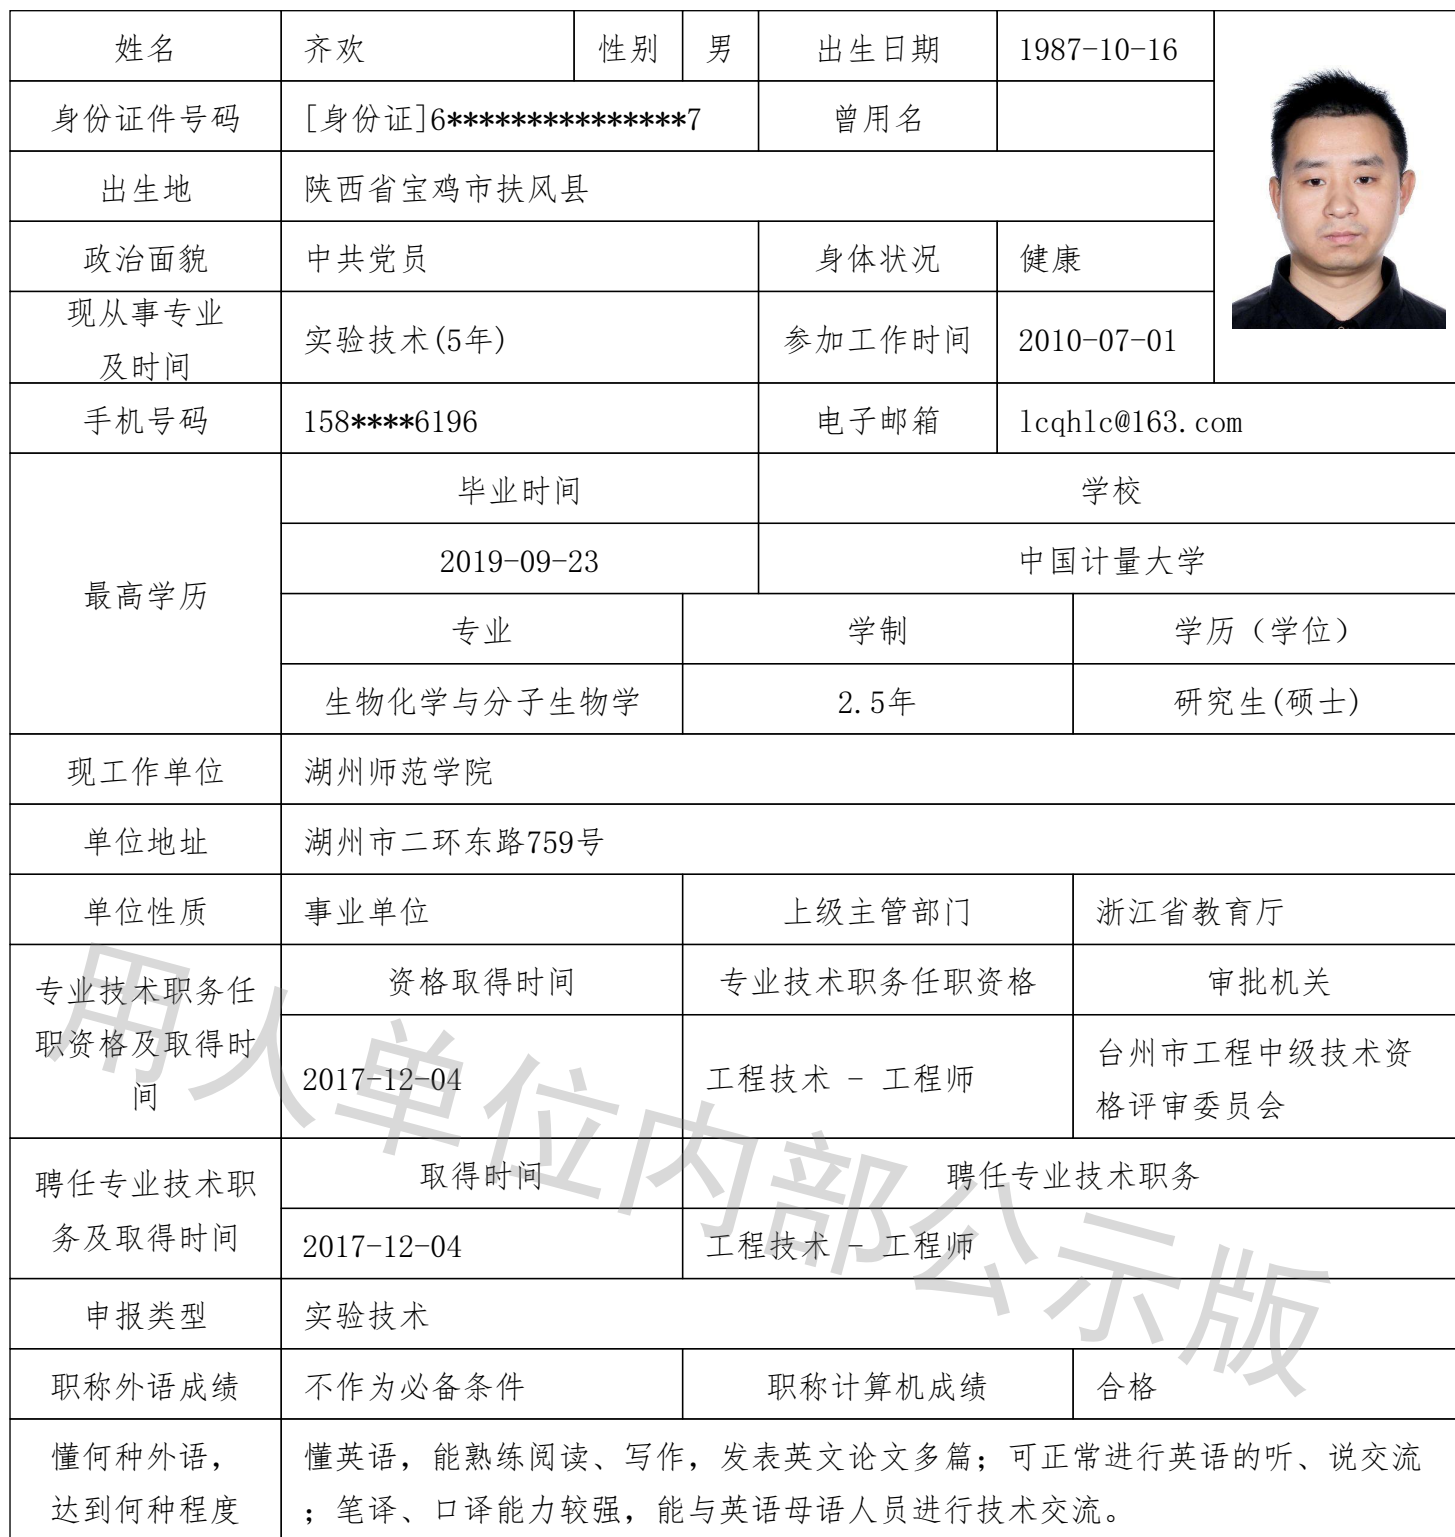 姓名 齐欢 性别 男 出生日期 1987-10-16
身份证件号码 [身份证]6***************7 曾用名
出生地 陕西省宝鸡市扶风县
政治面貌 中共党员 身体状况 健康
现从事专业
及时间 实验技术(5年) 参加工作时间 2010-07-01
手机号码 158****6196 电子邮箱 lcqhlc@163.com
最高学历
毕业时间 学校
2019-09-23 中国计量大学
专业 学制 学历（学位）
生物化学与分子生物学 2.5年 研究生(硕士)
现工作单位 湖州师范学院
单位地址 湖州市二环东路759号
单位性质 事业单位 上级主管部门 浙江省教育厅
专业技术职务任
职资格及取得时
间
资格取得时间 专业技术职务任职资格 审批机关
2017-12-04 工程技术 - 工程师 台州市工程中级技术资
格评审委员会
聘任专业技术职
务及取得时间
取得时间 聘任专业技术职务
2017-12-04 工程技术 - 工程师
申报类型 实验技术
职称外语成绩 不作为必备条件 职称计算机成绩 合格
懂何种外语，
达到何种程度
懂英语，能熟练阅读、写作，发表英文论文多篇；可正常进行英语的听、说交流
；笔译、口译能力较强，能与英语母语人员进行技术交流。
用人单位内部公示版